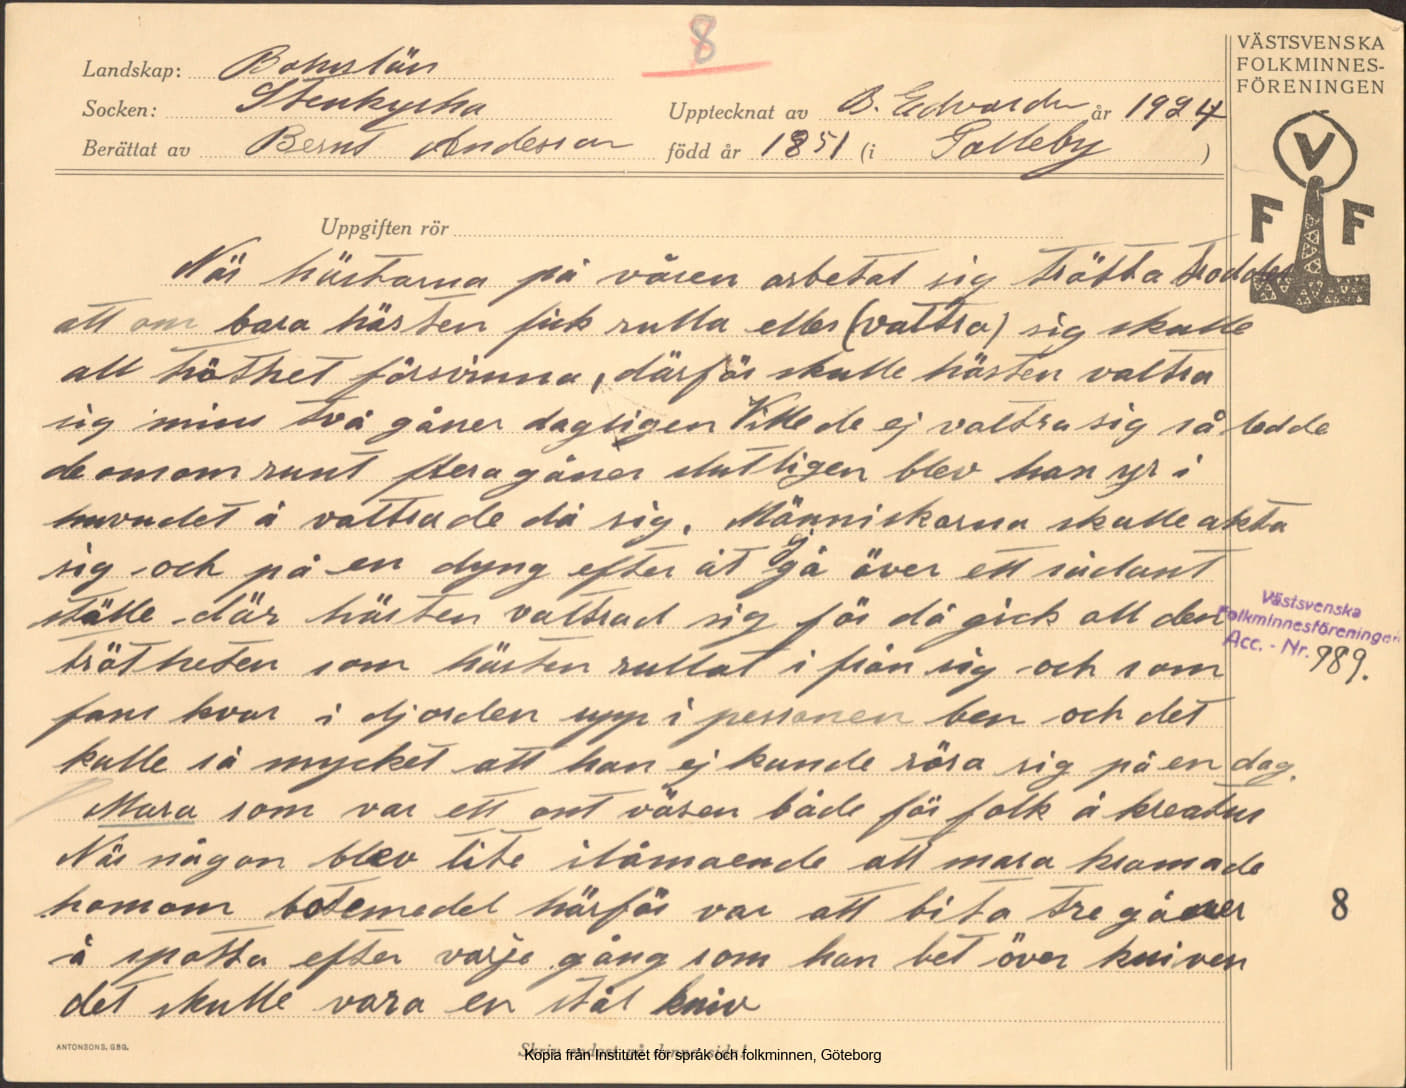 8
VÄSTSVENSKA
FOLKMINNES-
FÖRENINGEN
Landskap: Bohuslän
Socken: Stenkyrka
Upptecknat av B. Edvardu år 1924
Berättat av Bernt Andersson född år 1851 (i Tolleby)
V
F F
Uppgiften rör
När hästarna på våren arbetat sig trötta trodde
att om bara hästen fick rulla eller (valtra) sig skulle
all tröthet försvinna, därför skulle hästen valtra
sig mins två gåner dagligen Ville de ej valtra sig så ledde
de omom runt flera gåner slutligen blev han yr i
huvudet å valtrade då sig. Människorna skulle akta
sig och på en dyng efter åt gå över ett sådant
ställe där hästen valtrad sig för då gick all den
trötheten som hästen rullat i från sig och som
fans kvar i djorden upp i personen ben och det
kulle så mycket att han ej kunde röra sig på en dag.
Mara som var ett ont väsen både för folk å kreatur
När någon blev lite ilåmaende att mara kramade
homom botemedel härför var att bita tre gåner
å spotta efter varje gång som han bet över kniven
det skulle vara en stål kniv
Västsvenska
Folkminnesföreningen
Acc. - Nr. 989.
8
ANTONSONS, GBG.
Skriv endast på denna sida!
Kopia från Institutet för språk och folkminnen, Göteborg